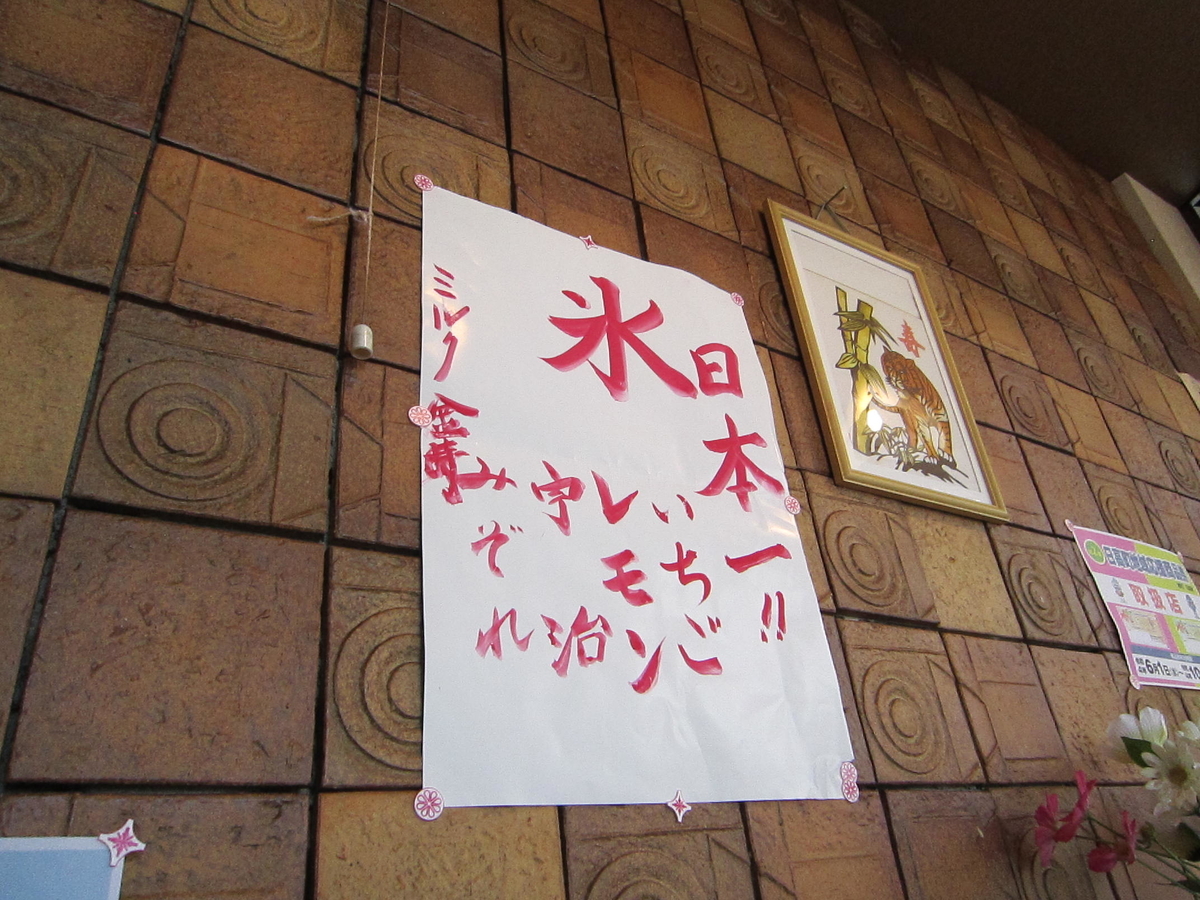 氷
日本一!!
いちご
レモン
宇治
みぞれ
ミルク金時
寿
取扱店
6月1日